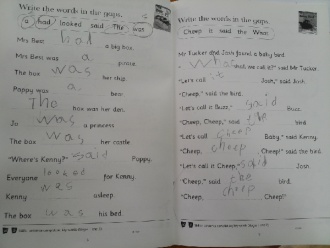 Write the words in the gaps.
a had looked said The was
Mrs Best had a big box.
Mrs Best was a posse.
The box was her ship.
Pappy was a bear.
The box was her den.
Jo was a princess
The box was her castle
"Where's Kenny?" said Puppy.
Everyone looked for Kenny.
Kenny was asleep.
The box was his bed.
Write the words in the gaps.
Cheep it said the What
Mr Tucker and Josh found a baby bird.
What shall we call it?" said Mr Tucker.
"Let's call it Josh," said Josh.
"Cheep," said the bird.
"Let's call it Buzz," said Buzz.
"Cheep, Cheep," said the bird
"Let's call cheep Baby," said Kenny.
"Cheep, cheep, Cheep!" said the bird.
"Let's call it Cheep," said Josh.
"Cheep," said the bird.
"Cheep, cheep Cheep!"